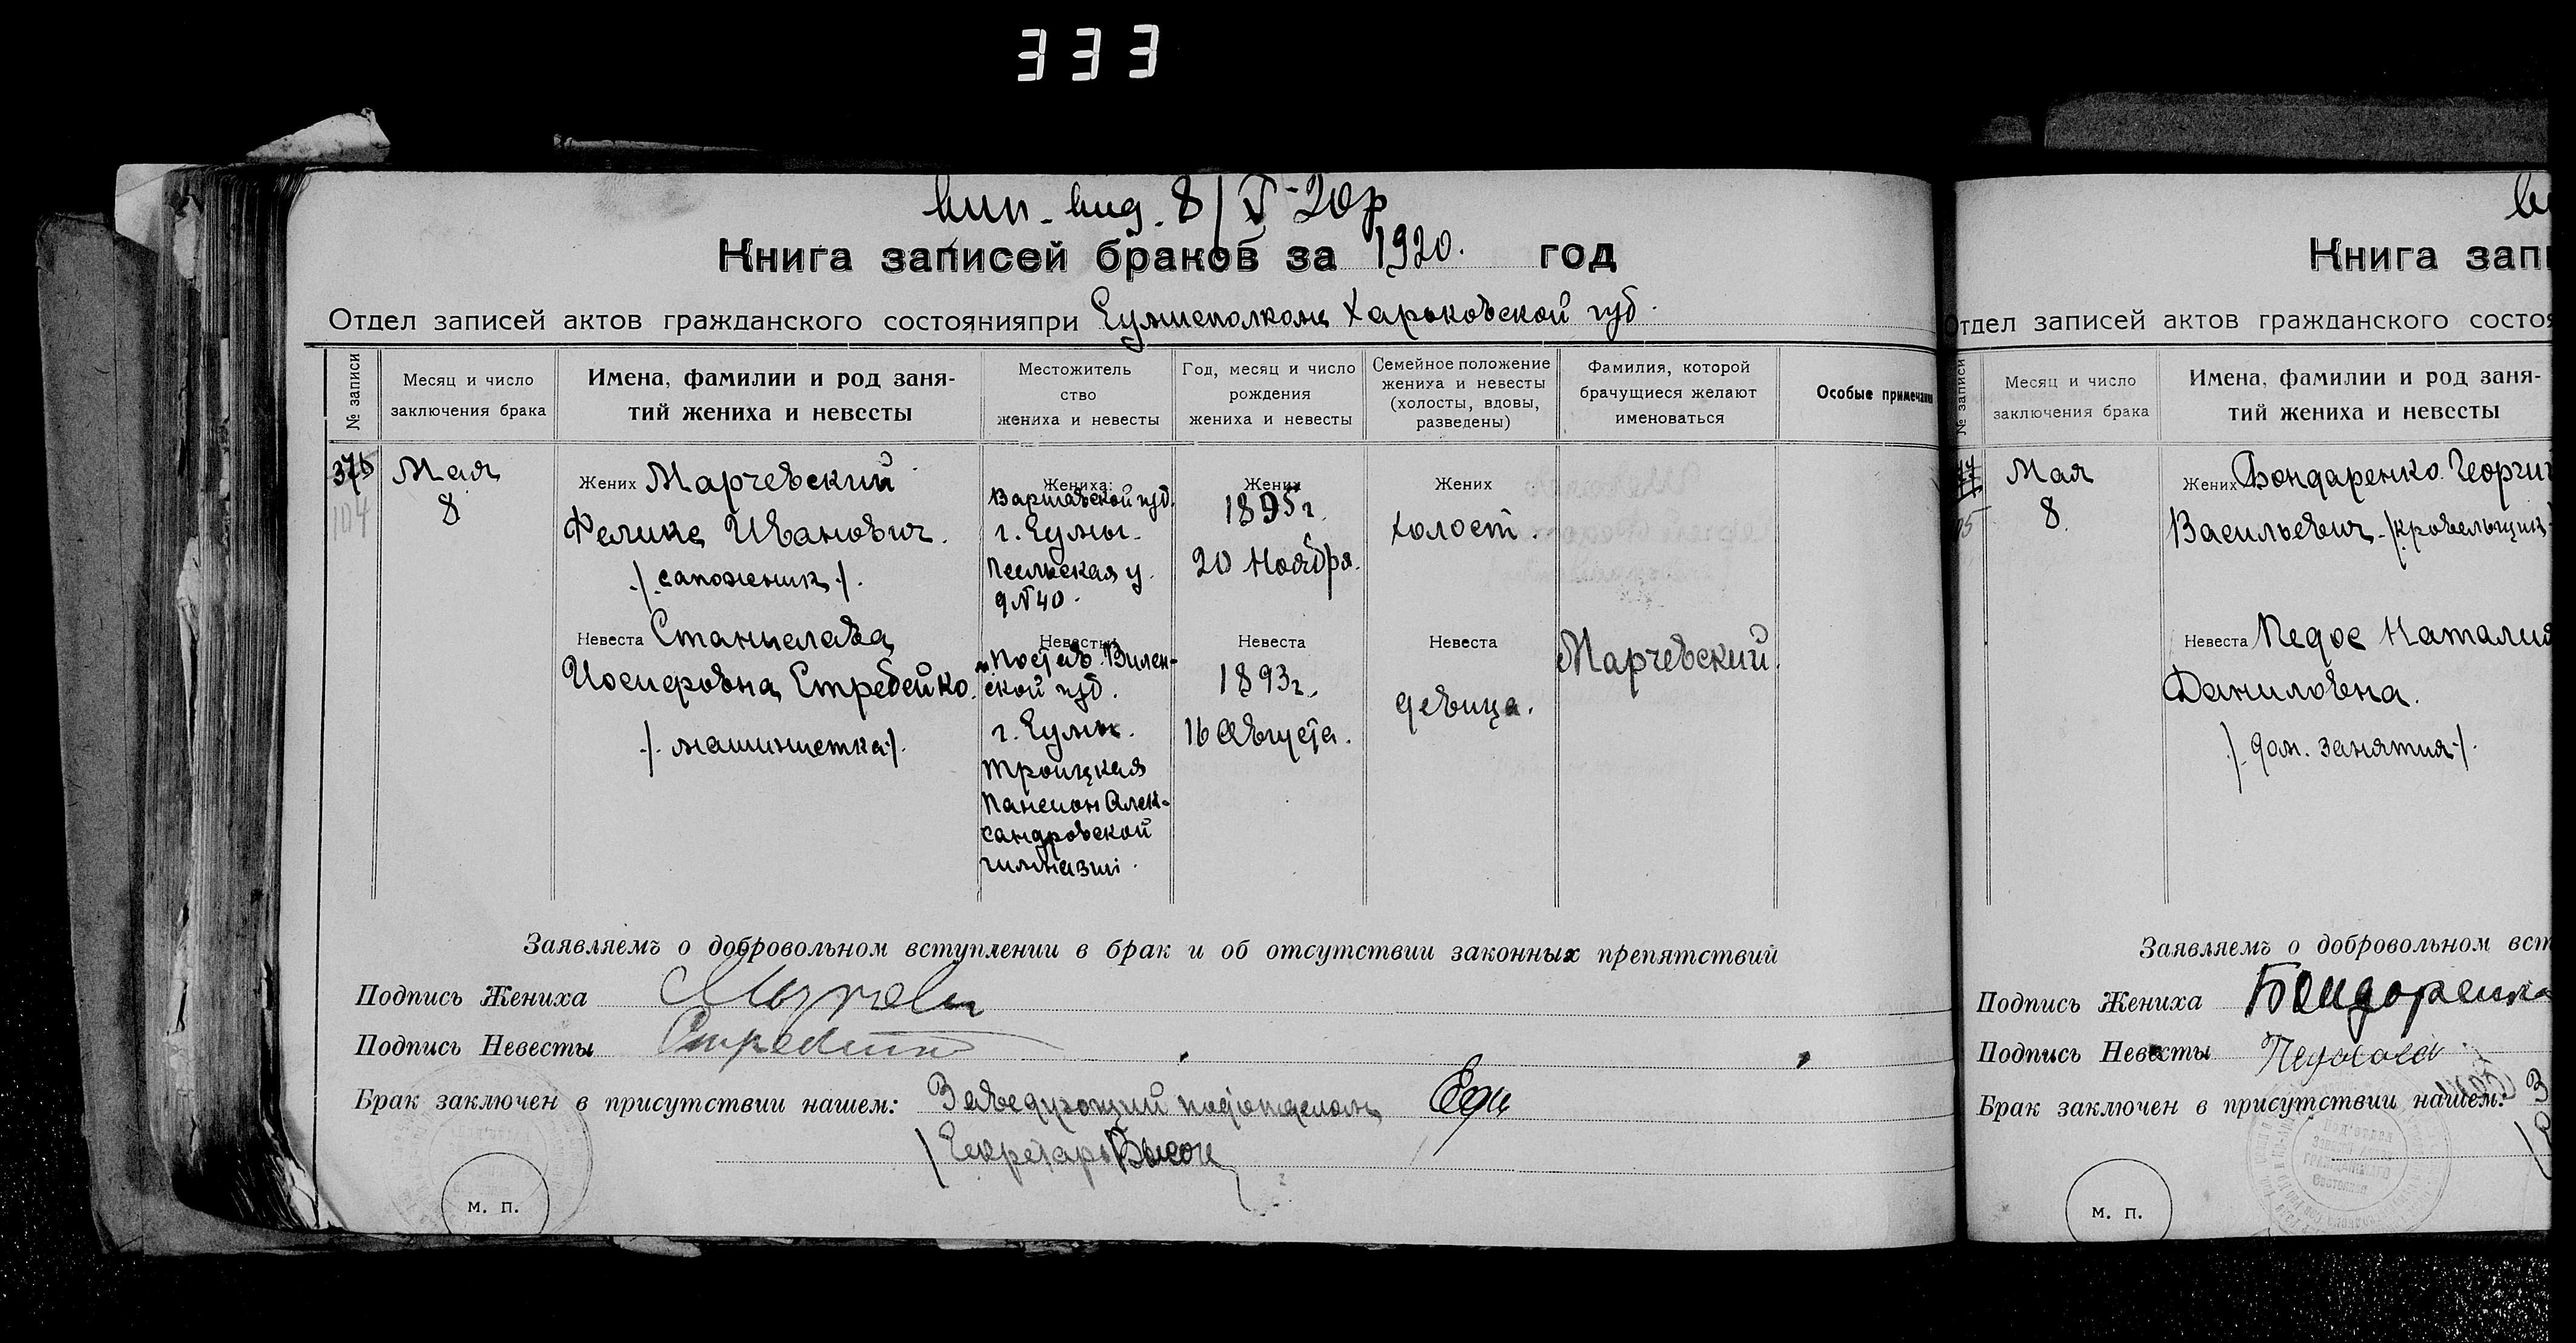 333
вип. вид. 8/V-20р
Книга записей браков за 1920. год
Отдел записей актов гражданского состоянияпри Сумисполкоме Харьковской губ.
№ записи
Месяц и число
заключения брака
Имена, фамилии и род заня-
тий жениха и невесты
Местожитель
ство
жениха и невесты
Год, месяц и число
рождения
жениха и невесты
Семейное положение
жениха и невесты
(холосты, вдовы,
разведены)
Фамилия, которой
брачущиеся желают
именоваться
Особые примечани
104
Мая
8
Жених Марчевский
Феликс Иванович.
/. сапожник ./.
Жениха:
Варшавской губ.
г. Сумы.
Псельская у.
д№40.
Жених
1895г.
20 Ноября.
Жених
холост.
Невеста Станислава
Иосифовна Стребейко.
/. машинистка ./
Невесты:
Постав. Вилен-
ской губ.
г. Сумы.
Троицкая
Пансион Алек-
сандровской
гимназии.
Невеста
1893г.
16 Августа.
Невеста
девица.
Марчевский.
Заявляемъ о добровольном вступлении в брак и об отсутствии законных препятствий
Подпись Жениха
Подпись Невесты
Брак заключен в присутствии нашем: Заведующий подотделом
/Секретарь
м. п.
Книга запи
Отдел записей актов гражданского состоя
№ записи
Месяц и число
заключения брака
Имена, фамилии и род заня-
тий жениха и невесты
Мая
8.
Жених Бондаренко Георгий
Васильевич /кровельщик
Невеста Педос Наталия
Даниловна.
/. дом. занятия ./.
Заявляемъ о добровольном вст
Подпись Жениха Бондоренка
Подпись Невесты
Брак заключен в присутствии нашем:
Под'отдел
записи актов
гражданского
состояния
м. п.